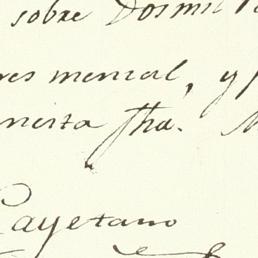 sobre Dosmil
res mencal, y
fha.
Cayetano